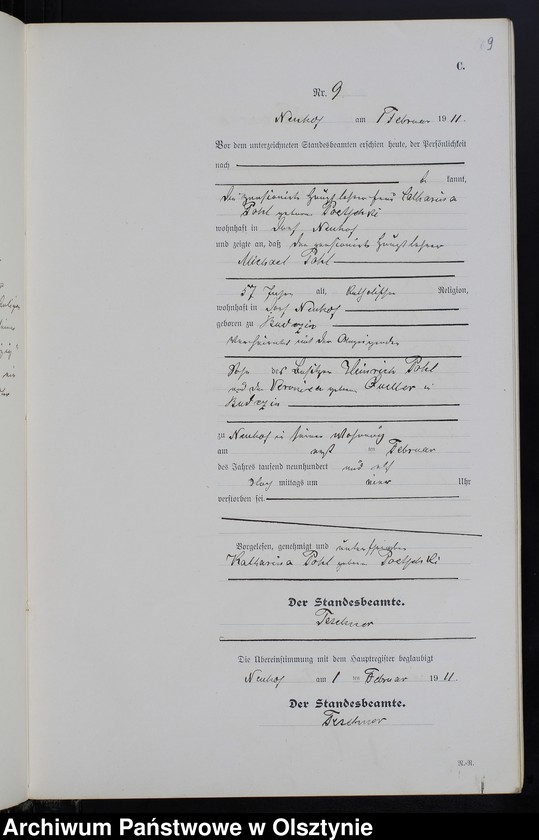 9
C.
Nr. 9
Neuhof am 1 Februar 1911.
Vor dem unterzeichneten Standesbeamten erschien heute, der Persönlichkeit
nach
kannt,
die pensionierte Hauptlehrerfrau Catharina
Pohl geborene Poetschki
wohnhaft in Dorf Neuhof
und zeigte an, daß der pensionierte Hauptlehrer
Michael Pohl
57 Jahre alt, katholischer Religion,
wohnhaft in Dorf Neuhof
geboren zu
verheiratet mit der Anzeigenden
Sohn des Besitzers Heinrich Pohl
und der Veronica geborene in
zu Neuhof in seiner Wohnung
am ersten Februar
des Jahres tausend neunhundert und elf
Nach mittags um vier Uhr
verstorben sei.
Vorgelesen, genehmigt und unterschrieben
Katharina Pohl geborene Poetschki
Der Standesbeamte.
Teschner
Die Übereinstimmung mit dem Hauptregister beglaubigt
Neuhof am 1 ten Februar 1911.
Der Standesbeamte.
Teschner
R.-R.
Archiwum Państwowe w Olsztynie